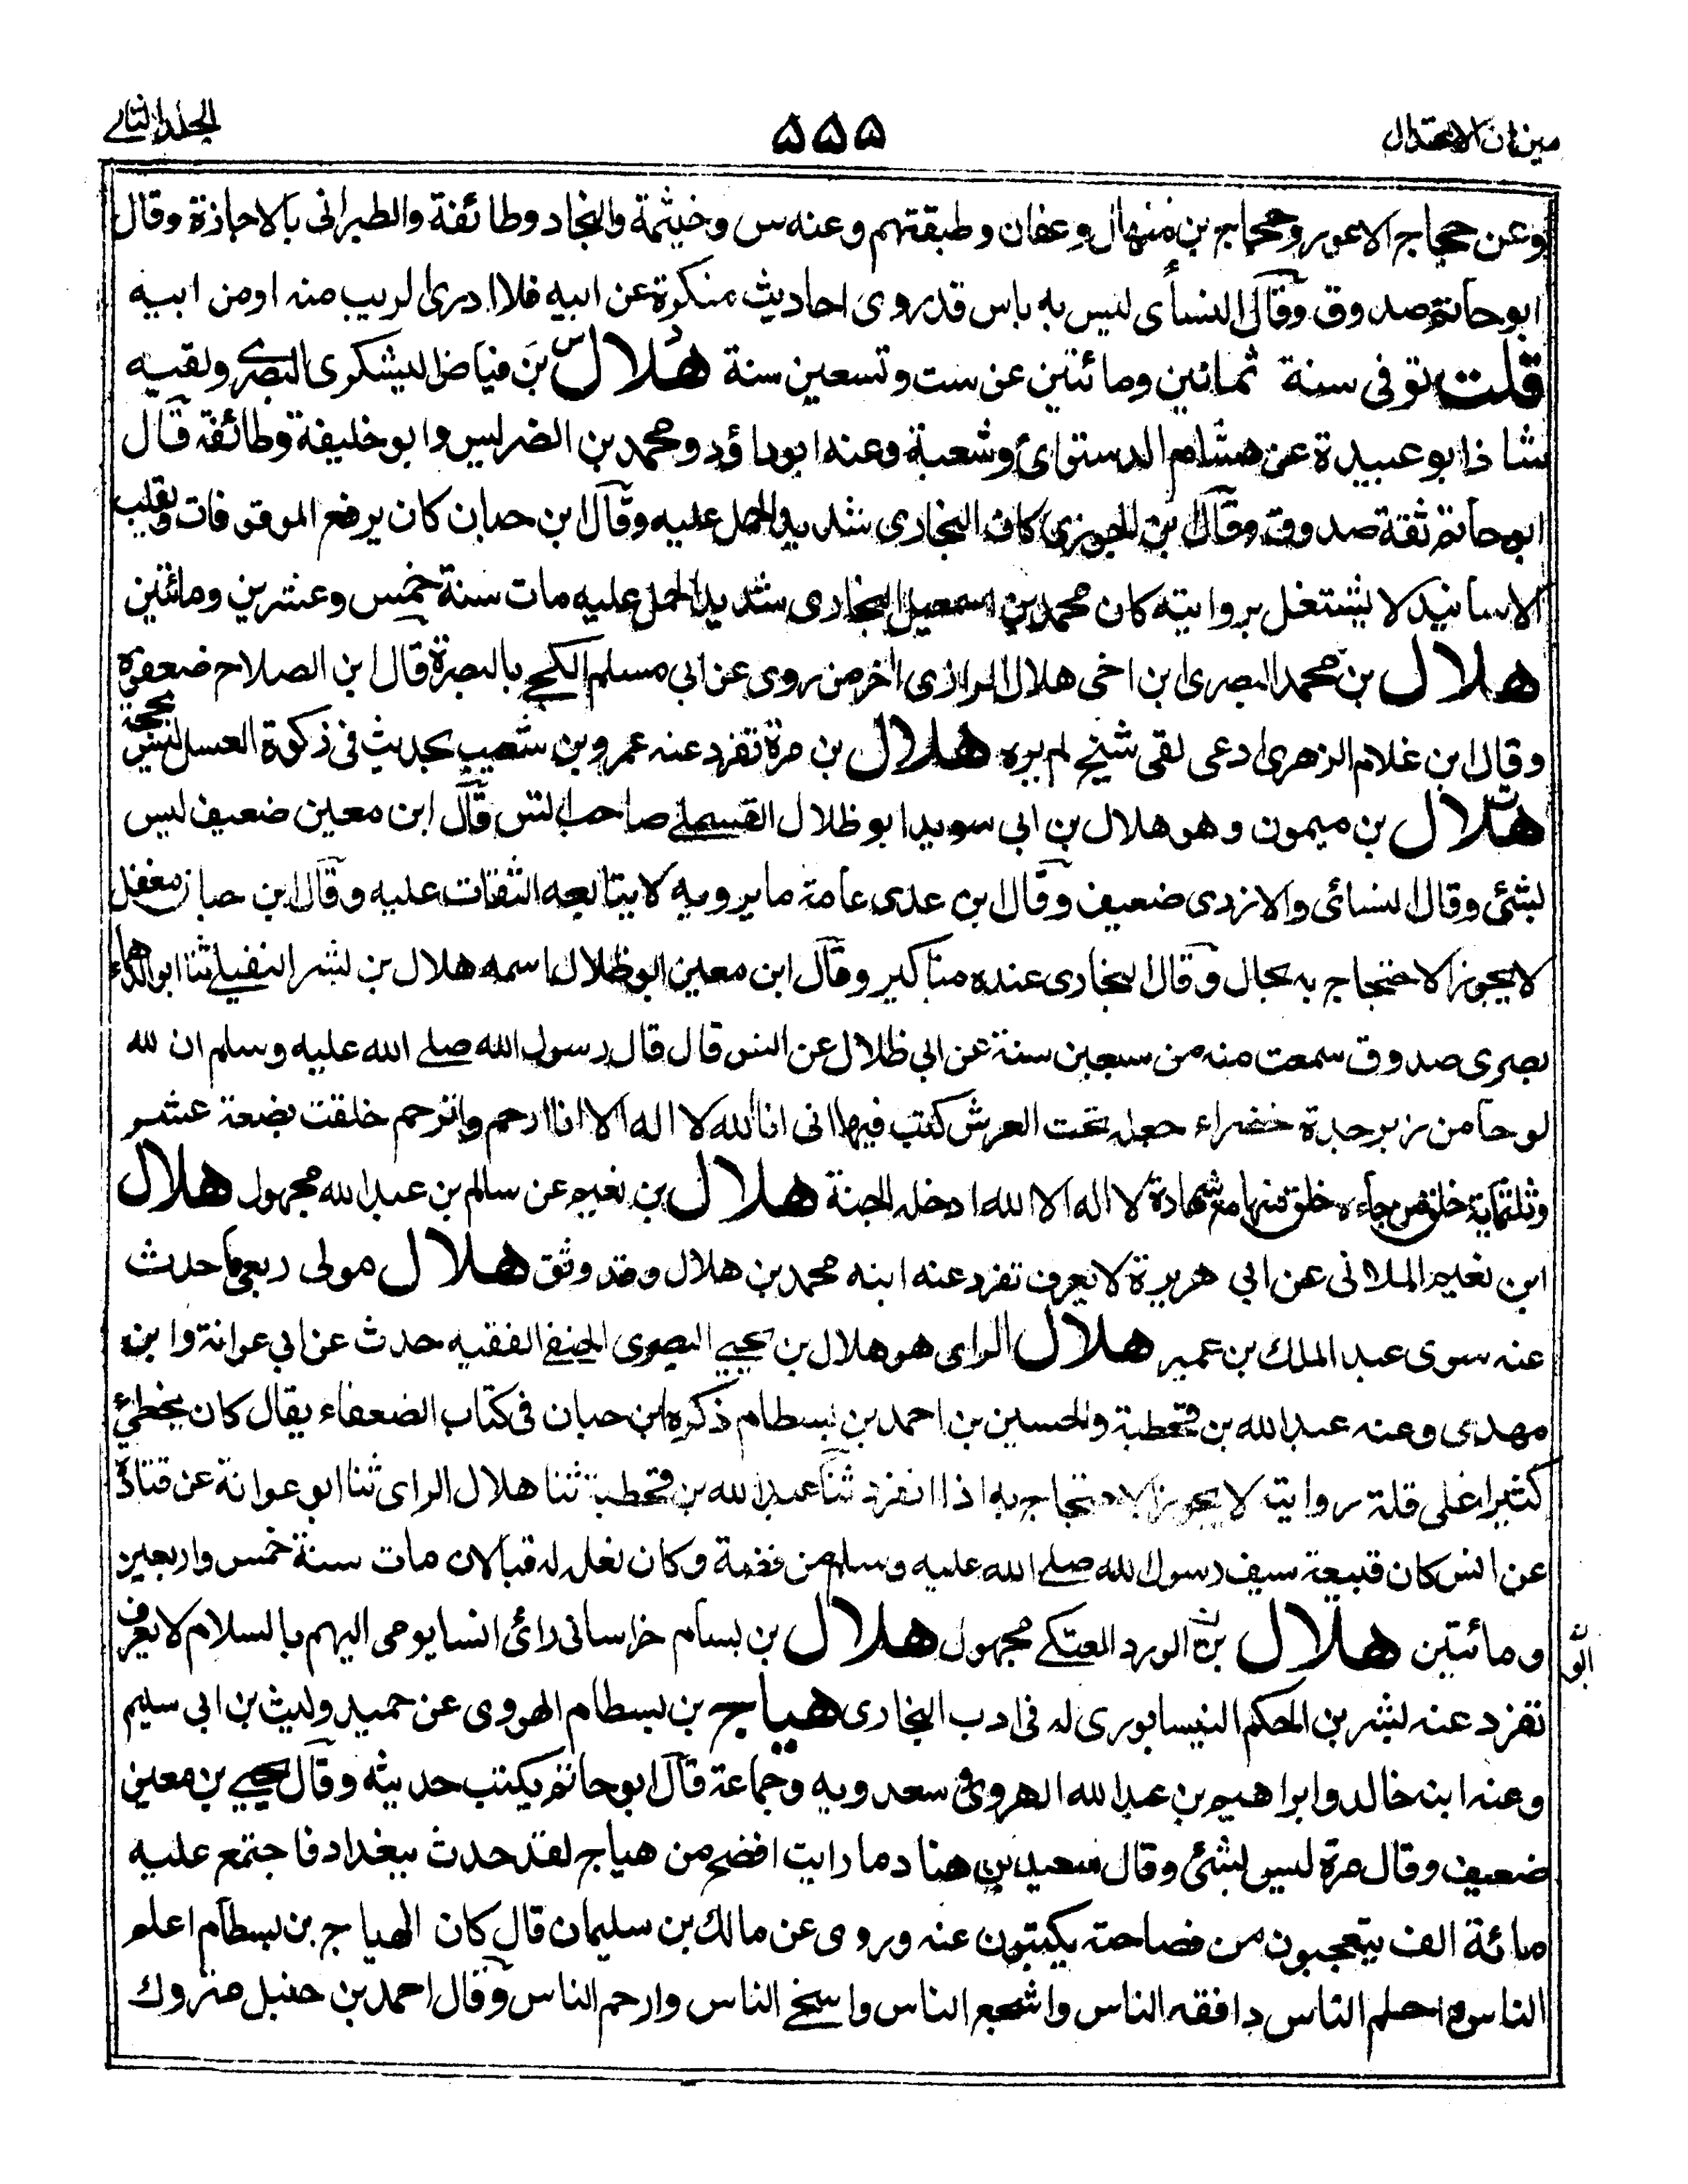 ميزان الاعتدال
۵۵۵
الجلد الثانے
وعن حجاج الاعور وحجاج بن منهال وعفان وطبقتهم وعنه س وخيثمة والنجاد وطائفة والطبرانى بالاجازة وقال
ابوحاتم صدوق وقال النسأى ليس به باس قد روى احاديث منكرة عن ابيه فلا ادرى الريب منه او من ابيه
قلت توفى سنة ثمانين ومائتين عن ست وتسعين سنة هلال بن فياض اليشكرى البصرے ولقبه
شاذ ابو عبيدة عن هشام الدستوائ وشعبة وعنه ابوداؤد ومحمد بن الضريس وابو خليفة وطائفة قال
ابوحاتم ثقة صدوق وقال ابن الجوزى كان البخارى شديد الحمل عليه وقال ابن حبان كان يرفع الموقوفات ويقلب
الاسانيد لا يشتغل بروايته كان محمد بن اسمعيل البخارى شديد الحمل عليه مات سنة خمس وعشرين ومائتين
هلال بن محمد البصرى ابن اخى هلال الرازى اخر من روى عن ابى مسلم الكجے بالبصرة قال ابن الصلاح ضعفوه
وقال ابن غلام الزهرى ادعى لقى شيخ لم يره هلال بن مرة تفرد عنه عمرو بن شعيب بحديث فى زكوة العسل ليس بحجة
هلال بن ميمون وهو هلال بن ابى سويد ابو ظلال القسملے صاحب انس قال ابن معين ضعيف ليس
بشئ وقال النسائى والازدى ضعيف وقال ابن عدى عامة ما يرويه لا يتابعه الثقات عليه وقال ابن حبان مغفل
لا يجوز الاحتجاج به بحال وقال البخارى عنده مناكير وقال ابن معين ابو ظلال اسمه هلال بن بشر النفيلے ثنا ابو الدهماء
بصرى صدوق سمعت منه من سبعين سنة عن ابى ظلال عن انس قال قال رسول الله صلے الله عليه وسلم ان لله
لوحا من زبرجدة خضراء جعله تحت العرش كتب فيها انى انا الله لا اله الا انا ارحم واترحم خلقت بضعة عشر
وثلثماية خلق من جاء بخلق منها مع شهادة لا اله الا الله ادخله الجنة هلال بن نعيم عن سالم بن عبد الله مجهول هلال
ابن نعيم الملائى عن ابى هريرة لا يعرف تفرد عنه ابنه محمد بن هلال وقد وثق هلال مولى ربعى ما حدث
عنه سوى عبد الملك بن عمير هلال الراى هو هلال بن يحيے البصرى الحنفے الفقيه حدث عن ابى عوانة وابن
مهدى وعنه عبد الله بن قحطبة والحسين بن احمد بن بسطام ذكره ابن حبان فى كتاب الضعفاء يقال كان يخطئ
كثيرا على قلة روايته لا يجوز الاحتجاج به اذا انفرد ثنا عبد الله بن قحطبة ثنا هلال الراى ثنا ابو عوانة عن قتادة
عن انس كان قبيعة سيف رسول الله صلے الله عليه وسلم من فضة وكان لنعله قبالان مات سنة خمس واربعين
ومائتين هلال بن ابو الورد العتكے مجهول هلال بن بسام خراسانى رائ انسا يومى اليهم بالسلام لا يعرف
تفرد عنه بشر بن الحكم النيسابورى له فى ادب البخارى هياج بن بسطام الهروى عن حميد وليث بن ابى سليم
وعنه ابنه خالد وابراهيم بن عبد الله الهروى سعدويه وجماعة قال ابو حاتم يكتب حديثه وقال يحيے بن معين
ضعيف وقال مرة ليس بشئ وقال سعيد بن هناد ما رايت افضح من هياج لقد حدث ببغداد فاجتمع عليه
مائة الف يتعجبون من فصاحته يكتبون عنه وروى عن مالك بن سليمان قال كان الهياج بن بسطام اعلم
الناس واحلم الناس وافقه الناس واشجع الناس واسخے الناس وارحم الناس وقال احمد بن حنبل متروك